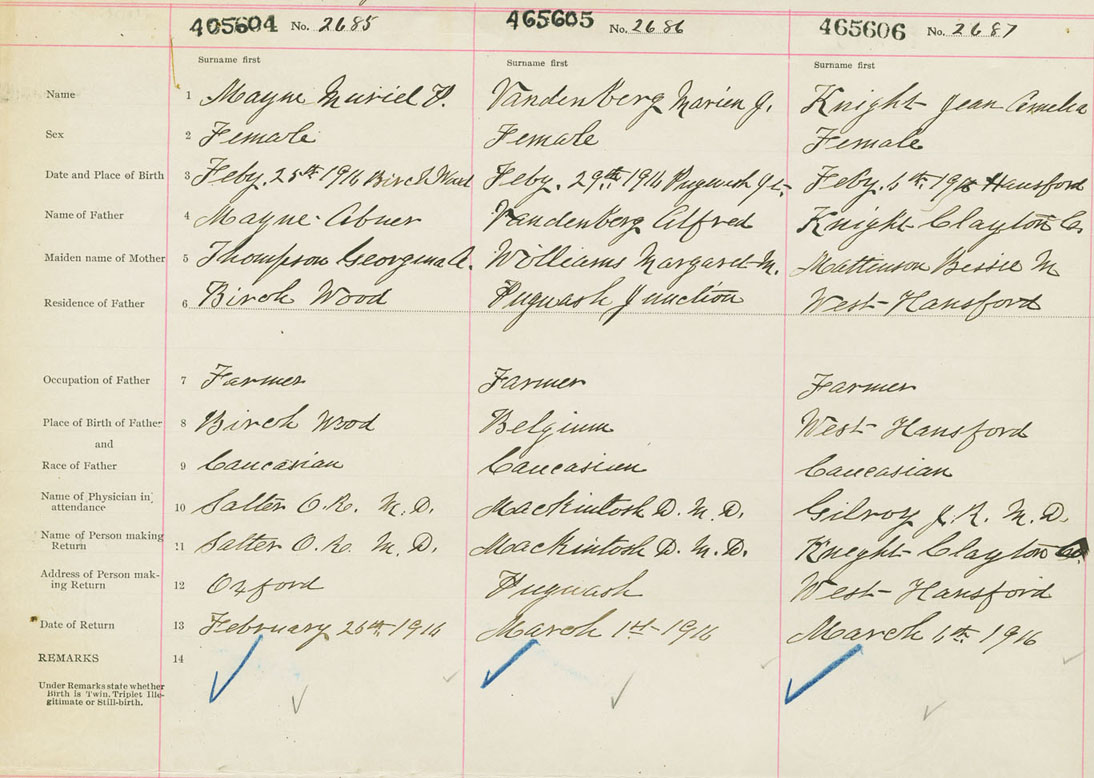 405604 No. 2685 465605 No. 2686 465606 No. 2687
Surname first Surname first Surname first
Name 1 Mayne Muriel P. Vandenberg Marien J. Knight Jean Amelia
Sex 2 Female Female Female
Date and Place of Birth 3 Feby. 25th 1916 Birch Wood Feby. 29th 1916 Pugwash Jct. Feby. 6th 1916 Hansford
Name of Father 4 Mayne Abner Vandenberg Alfred Knight Clayton C.
Maiden name of Mother 5 Thompson Georgina A. Williams Margaret M. Mattinson Bessie M
Residence of Father 6 Birch Wood Pugwash Junction West Hansford
Occupation of Father 7 Farmer Farmer Farmer
Place of Birth of Father 8 Birch Wood Belgium West Hansford
and
Race of Father 9 Caucasian Caucasian Caucasian
Name of Physician in attendance 10 Salter O.R. M.D. Mackintosh D. M.D. Gilroy J.R. M.D.
Name of Person making Return 11 Salter O.R. M.D. Mackintosh D. M.D. Knight Clayton
Address of Person making Return 12 Oxford Pugwash West Hansford
Date of Return 13 February 26th 1916 March 1st 1916 March 6th 1916
REMARKS 14
Under Remarks state whether
Birth is Twin, Triplet Ille-
gitimate or Still-birth.